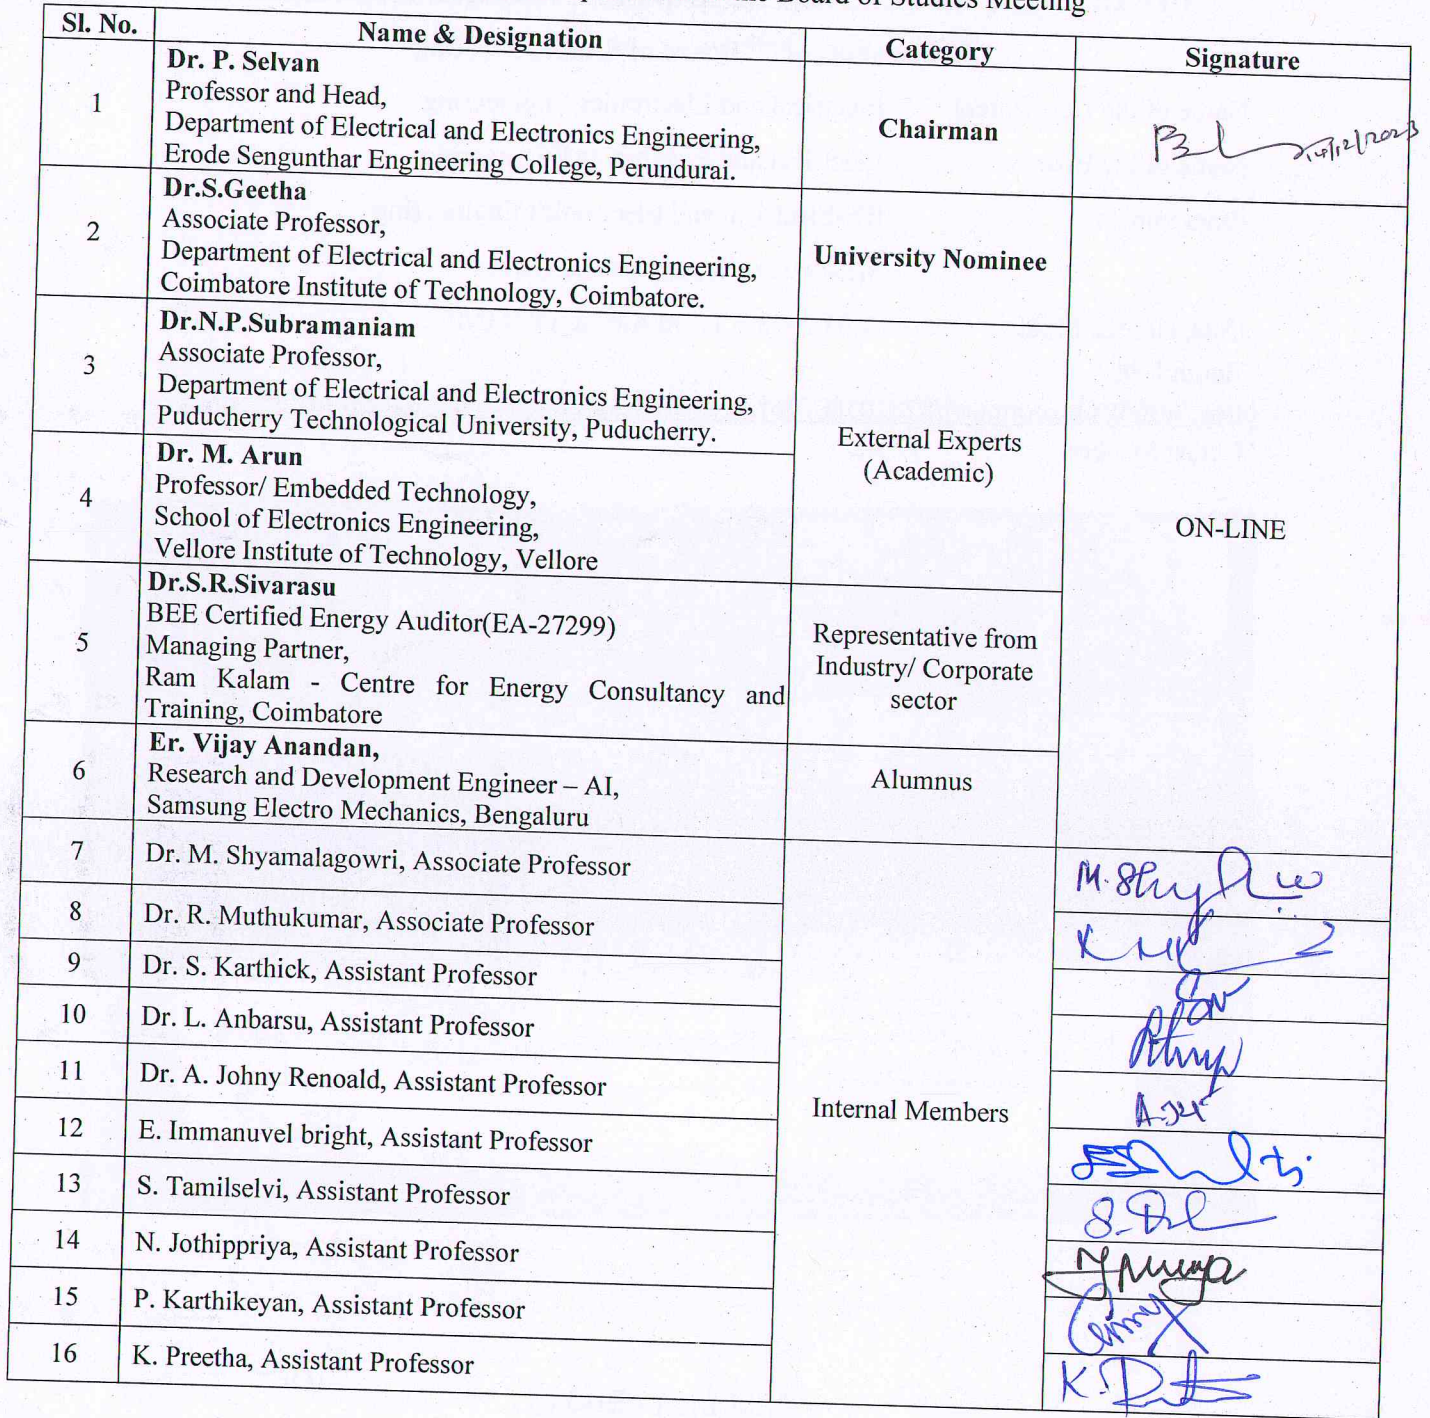 Board of Studies Meeting
Sl. No. Name & Designation Category Signature
1
Dr. P. Selvan
Professor and Head,
Department of Electrical and Electronics Engineering,
Erode Sengunthar Engineering College, Perundurai.
Chairman
14/12/2023
2
Dr.S.Geetha
Associate Professor,
Department of Electrical and Electronics Engineering,
Coimbatore Institute of Technology, Coimbatore.
University Nominee
3
Dr.N.P.Subramaniam
Associate Professor,
Department of Electrical and Electronics Engineering,
Puducherry Technological University, Puducherry.
External Experts
(Academic)
4
Dr. M. Arun
Professor/ Embedded Technology,
School of Electronics Engineering,
Vellore Institute of Technology, Vellore
ON-LINE
5
Dr.S.R.Sivarasu
BEE Certified Energy Auditor(EA-27299)
Managing Partner,
Ram Kalam - Centre for Energy Consultancy and
Training, Coimbatore
Representative from
Industry/ Corporate
sector
6
Er. Vijay Anandan,
Research and Development Engineer – AI,
Samsung Electro Mechanics, Bengaluru
Alumnus
7 Dr. M. Shyamalagowri, Associate Professor
8 Dr. R. Muthukumar, Associate Professor
9 Dr. S. Karthick, Assistant Professor
10 Dr. L. Anbarsu, Assistant Professor
11 Dr. A. Johny Renoald, Assistant Professor
Internal Members
12 E. Immanuvel bright, Assistant Professor
13 S. Tamilselvi, Assistant Professor
14 N. Jothippriya, Assistant Professor
15 P. Karthikeyan, Assistant Professor
16 K. Preetha, Assistant Professor